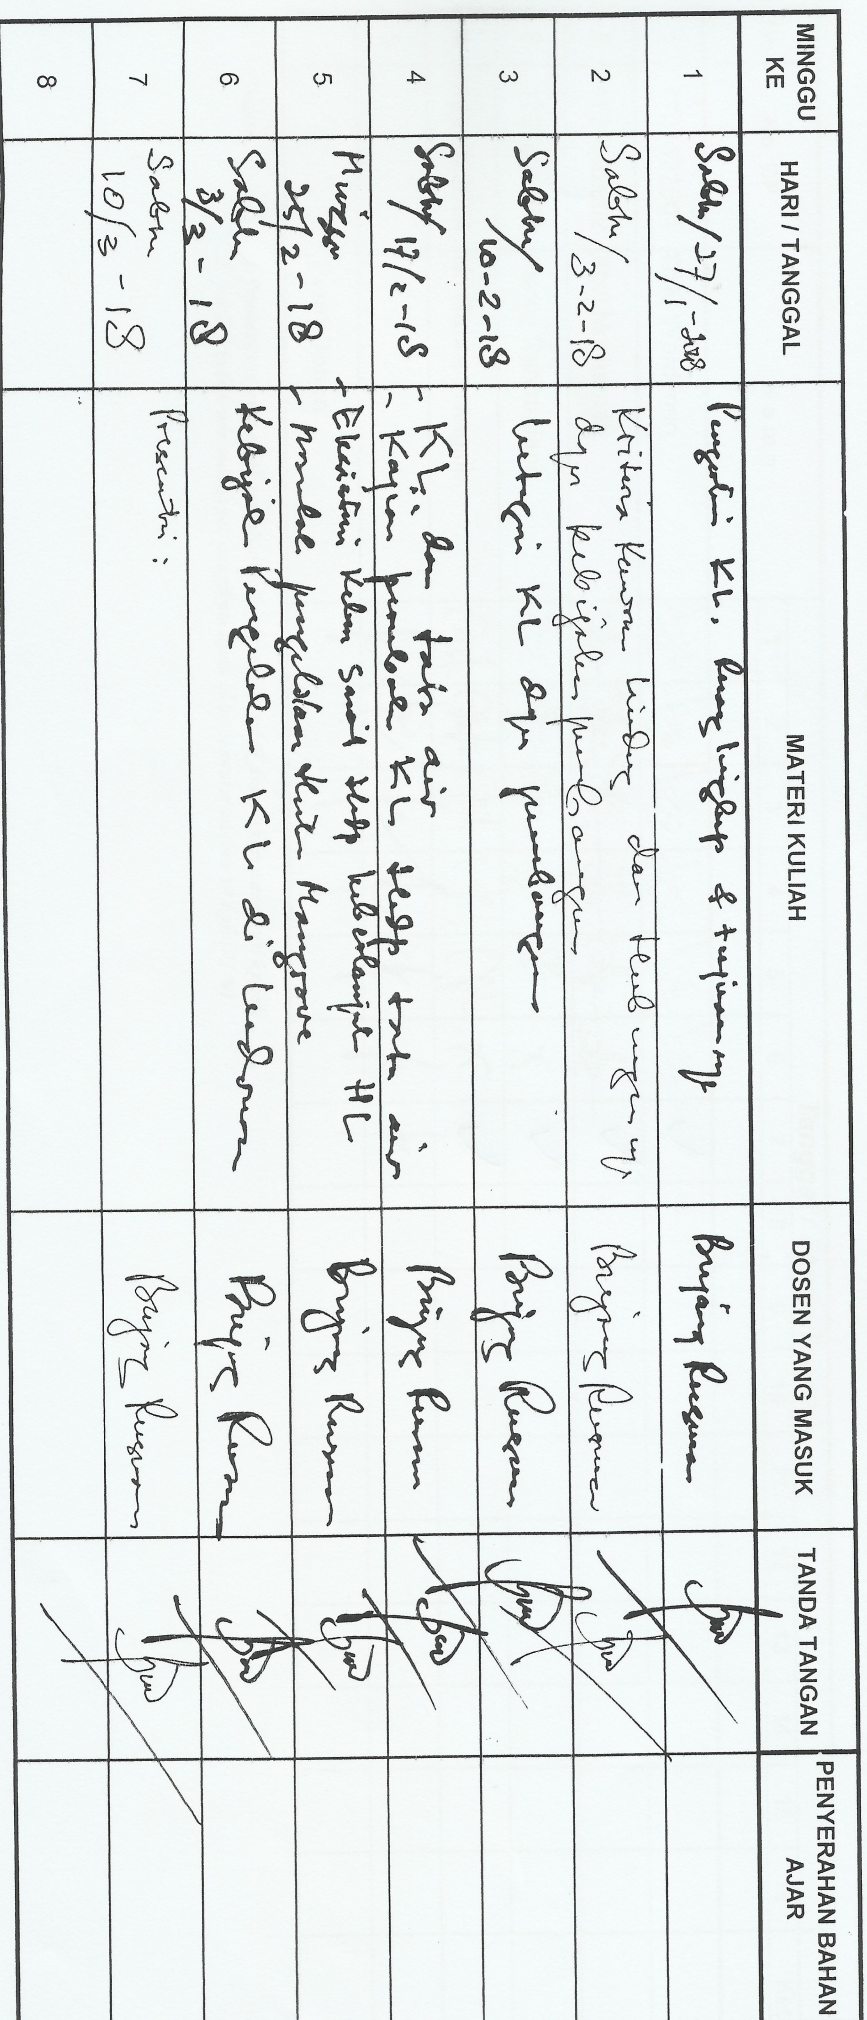 MINGGU KE
HARI / TANGGAL
MATERI KULIAH
DOSEN YANG MASUK
TANDA TANGAN
PENYERAHAN BAHAN AJAR
1
Sabtu / 27/1-2018
KL, Ruang lingkup & tujuannya
Bujang Rusman
2
Sabtu / 3-2-18
Kriteria Kawasan Lindung dan Hubungannya
dgn kebijakan pembangunan
Bujang Rusman
3
Sabtu /
10-2-18
KL dgn pembangunan
Bujang Rusman
4
Sabtu /
17/2-18
- KL dan tata air
- Kajian KL thdp tata air
Bujang Rusman
5
Minggu
25/2-18
- Kebun Sawit thdp keberlanjutan HL
- Masalah pengelolaan Hutan Mangrove
Bujang Rusman
6
Sabtu
3/3-18
Kebijakan Pengelolaan KL di Indonesia
Bujang Rusman
7
Sabtu
10/3-18
Presentasi :
Bujang Rusman
8